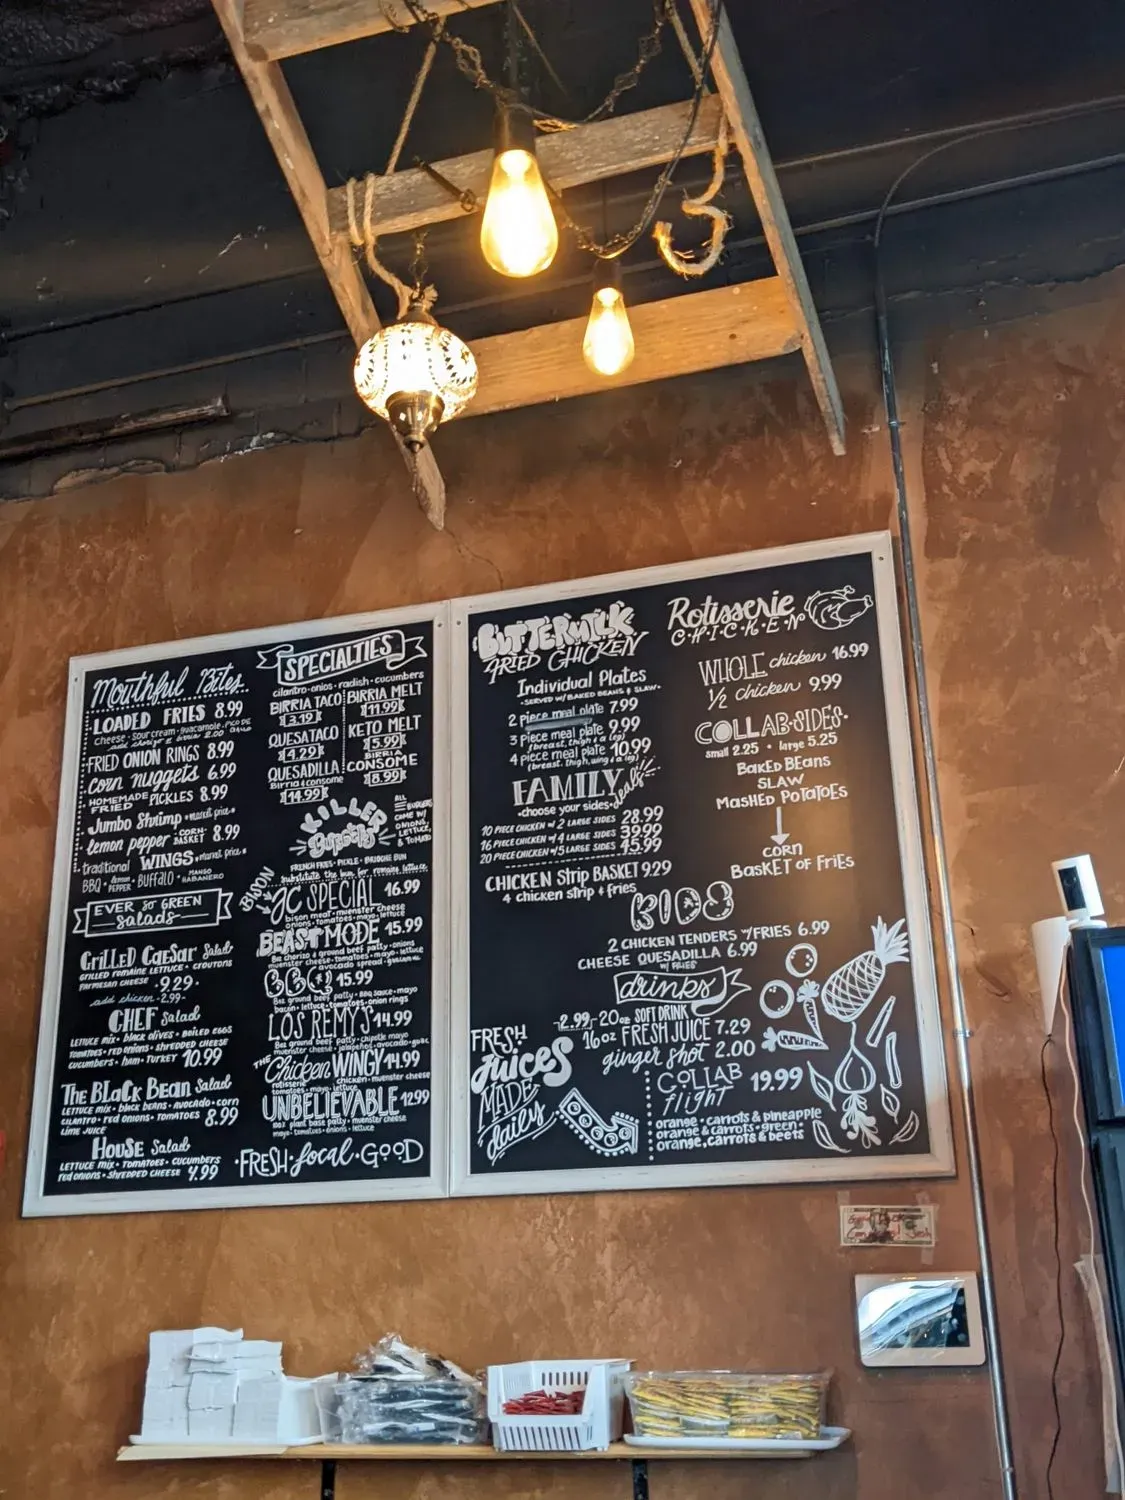 Mouthful Bites
LOADED FRIES 8.99
cheese · sour cream · guacamole · PICO DE
FRIED ONION RINGS 8.99
corn nuggets 6.99
HOMEMADE FRIED PICKLES 8.99
Jumbo Shrimp · market price ·
lemon pepper CORN- BASKET 8.99
traditional WINGS · market price ·
BBQ · lemon PEPPER · BUFFALO · MANGO HABANERO
EVER SO GREEN
salads
GRilLED CaeSar Salad
GRILLED ROMAINE LETTUCE · CROUTONS
PARMESAN CHEESE · 9.29 ·
add chicken - 2.99 -
CHEF Salad
LETTUCE MIX · black olives · BOILED EGGS
tomatoes · red onions · SHREDDED CHEESE
cucumbers · ham · TURKEY 10.99
The BLack Bean Salad
LETTUCE MIX · black beans · avocado · corn
CILANTRO · red onions · TOMATOES 8.99
LIME JUICE
HOUSE Salad
LETTUCE MIX · TOMATOES · CUCUMBERS
red onions · SHREDDED CHEESE 4.99
SPECIALTIES
cilantro · onions · radish · cucumbers
BIRRIA TACO
3.19
QUESATACO
4.29
QUESADILLA
Birria & consome
14.99
BIRRIA MELT
11.99
KETO MELT
15.99
BIRRIA
CONSOME
8.99
KILLER
Burgers
ALL BURGERS COME W/ ONIONS, LETTUCE, & TOMATO
FRENCH FRIES · PICKLE · BRIOCHE BUN
substitute the bun for romaine lettuce
BISON
JC SPECIAL 16.99
bison meat · muenster cheese
onions · tomatoes · mayo · lettuce
BEAST MODE 15.99
8oz chorizo & ground beef patty · onions
muenster cheese · tomatoes · mayo · lettuce
avocado spread
BBQ 15.99
8oz ground beef patty · BBQ sauce · mayo
bacon · lettuce · tomatoes · onion rings
LOS REMY'S 14.99
8oz ground beef patty · chipotle mayo
muenster cheese · jalapeños · avocado · guac
THE Chicken WINGY 14.99
rotisserie chicken · muenster cheese
tomatoes · mayo · lettuce
UNBELIEVABLE 12.99
100% plant base patty · muenster cheese
mayo · tomatoes · onions · lettuce
· FRESH · local · GOOD
BUTTERMILK
FRIED CHICKEN
Individual Plates
· SERVED W/ BAKED BEANS & SLAW ·
2 piece meal plate 7.99
3 piece meal plate 9.99
(breast, thigh & leg)
4 piece meal plate 10.99
(breast, thigh, wing & leg)
FAMILY deals
· choose your sides ·
10 PIECE CHICKEN w/ 2 LARGE SIDES 28.99
16 PIECE CHICKEN w/ 4 LARGE SIDES 39.99
20 PIECE CHICKEN w/ 5 LARGE SIDES 45.99
CHICKEN Strip BASKET 9.29
4 chicken strip & fries
Rotisserie
C·H·I·C·K·E·N
WHOLE chicken 16.99
1/2 chicken 9.99
COLLAB·SIDES·
small 2.25 · large 5.25
BaKeD BEANS
SLAW
MaSHED POTATOES
CORN
BasKET OF FriEs
KIDS
2 CHICKEN TENDERS w/ FRIES 6.99
CHEESE QUESADILLA 6.99
W/ FRIES
drinks
- 2.99 - 20oz SOFT DRINK
16oz FRESH JUICE 7.29
ginger shot 2.00
COLLAB flight 19.99
orange · carrots & pineapple
orange & carrots · green ·
orange, carrots & beets
FRESH
juices
MADE
daily